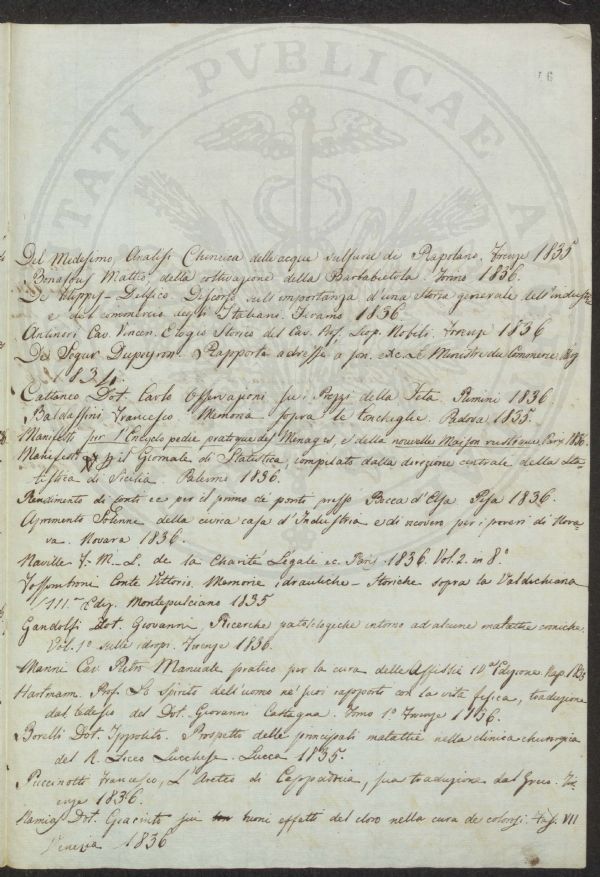 TATI PVBLICAE
16
Del Medesimo, Analisi Chimica delle acque sulfuree di Rapolano. Firenze 1835
Bonafous Matteo, della coltivazione della Barbabietola. Torino 1836.
De Filippis-Delfico Discorso sull'importanza d'una Storia generale dell'industria
e del commercio degli Italiani. Teramo 1836.
Antinori Cav. Vincen. Elogio Storico del Cav. Prof. Leop. Nobili. Firenze 1836
De Segur Dupeyron. Rapporto adressé a son. exc. Le Ministre du Commerce
1834.
Cattaneo Dot. Carlo Osservazioni sui Prezzi della Seta. Rimini 1836
Baldassini Francesco. Memoria sopra le conchiglie. Padova 1835.
Manifesti sur l'Encyclopedie pratique des Menages, e della nouvelle Maison rustique, Paris 1836.
Manifesto il Giornale di Statistica, compilato dalla direzione centrale della Sta-
tistica di Sicilia. Palermo 1836.
Rendimento di conti ec per il primo de ponti presso Bocca d'Elsa Pisa 1836.
Aprimento Solenne della civica casa d'Industria e di ricovero per i poveri di Nova-
ra. Novara 1836.
Naville F. M. L. de la Charité Legale ec. Paris 1836. Vol. 2. in 8°
Fossombroni Conte Vittorio. Memorie idrauliche-Storiche sopra la Valdichiana
III.ª Ediz. Montepulciano 1835
Gandolfi Dot. Giovanni Ricerche patologiche intorno ad alcune malattie croniche.
Vol. 1° sulle idropi. Firenze 1836.
Manni Cav. Pietro Manuale pratico per la cura delle Asfissie Edizione. Nap. 1835
Hartmann. Prof. Lo Spirito dell'uomo ne' suoi rapporti con la vita fisica, traduzione
dal tedesco del Dot. Giovanni Castagna. Tomo 1° Firenze 1836.
Borelli Dot. Ippolito. Prospetto delle principali malattie nella clinica chirurgica
del R. Liceo Lucchese. Lucca 1835.
Puccinotti Francesco, L'Areteo di Cappadocia, sua traduzione dal Greco. Fi-
renze 1836.
Namias Dot. Giacinto sui buoni effetti del cloro nella cura de colerosi. Fas. VII
Venezia 1836